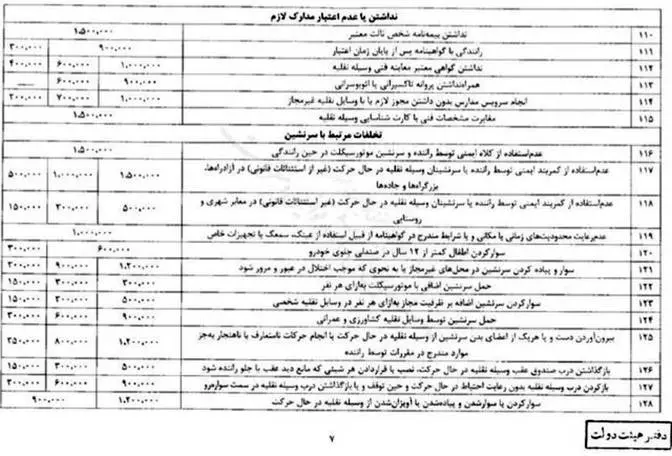 نداشتن یا عدم اعتبار مدارک لازم
۱۱۰ نداشتن بیمه‌نامه شخص ثالث معتبر ۱،۵۰۰،۰۰۰
۱۱۱ رانندگی با گواهینامه پس از پایان زمان اعتبار ۹۰۰،۰۰۰ ۳۰۰،۰۰۰
۱۱۲ نداشتن گواهی معتبر معاینه فنی وسیله نقلیه ۱،۰۰۰،۰۰۰ ۶۰۰،۰۰۰ ۴۰۰،۰۰۰
۱۱۳ همراه‌نداشتن پروانه تاکسیرانی یا اتوبوسرانی ۹۰۰،۰۰۰ ۶۰۰،۰۰۰ ــــ
۱۱۴ انجام سرویس مدارس بدون داشتن مجوز لازم یا با وسایل نقلیه غیرمجاز ۱،۰۰۰،۰۰۰ ۷۰۰،۰۰۰ ۲۰۰،۰۰۰
۱۱۵ مغایرت مشخصات فنی با کارت شناسایی وسیله نقلیه ۱،۵۰۰،۰۰۰
تخلفات مرتبط با سرنشین
۱۱۶ عدم‌استفاده از کلاه ایمنی توسط راننده و سرنشین موتورسیکلت در حین رانندگی ۱،۵۰۰،۰۰۰
۱۱۷ عدم‌استفاده از کمربند ایمنی توسط راننده یا سرنشینان وسیله نقلیه در حال حرکت (غیر از استثنائات قانونی) در آزادراه‌ها، ۱،۵۰۰،۰۰۰ ۱،۰۰۰،۰۰۰ ۵۰۰،۰۰۰
بزرگراه‌ها و جاده‌ها
۱۱۸ عدم‌استفاده از کمربند ایمنی توسط راننده یا سرنشینان وسیله نقلیه در حال حرکت (غیر از استثنائات قانونی) در معابر شهری و ۵۰۰،۰۰۰ ۳۰۰،۰۰۰ ۱۵۰،۰۰۰
روستایی
۱۱۹ عدم‌رعایت محدودیت‌های زمانی یا مکانی و یا شرایط مندرج در گواهینامه از قبیل استفاده از عینک، سمعک یا تجهیزات خاص ۱،۰۰۰،۰۰۰
۱۲۰ سوارکردن اطفال کمتر از ۱۲ سال در صندلی جلوی خودرو ۶۰۰،۰۰۰ ۳۰۰،۰۰۰
۱۲۱ سوار و پیاده کردن سرنشین در محل‌های غیرمجاز یا به نحوی که موجب اختلال در عبور و مرور شود ۱،۲۰۰،۰۰۰ ۹۰۰،۰۰۰ ۳۰۰،۰۰۰
۱۲۲ حمل سرنشین اضافی با موتورسیکلت به‌ازای هر نفر ۳۰۰،۰۰۰ ۳۰۰،۰۰۰ ۱۵۰،۰۰۰
۱۲۳ سوارکردن سرنشین اضافه بر ظرفیت مجاز به‌ازای هر نفر در وسایل نقلیه شخصی ۵۰۰،۰۰۰ ۳۰۰،۰۰۰ ۱۵۰،۰۰۰
۱۲۴ حمل سرنشین توسط وسایل نقلیه کشاورزی و عمرانی ۹۰۰،۰۰۰ ۶۰۰،۰۰۰ ۳۰۰،۰۰۰
۱۲۵ بیرون‌آوردن دست و یا هریک از اعضای بدن سرنشین از وسیله نقلیه در حال حرکت یا انجام حرکات نامتعارف یا ناهنجار به‌جز ۱،۲۰۰،۰۰۰ ۸۰۰،۰۰۰ ۲۵۰،۰۰۰
موارد مندرج در مقررات توسط راننده
۱۲۶ بازگذاشتن درب صندوق عقب وسیله نقلیه در حال حرکت، نصب یا قراردادن هر شیئی که مانع دید عقب یا جلو راننده شود ۵۰۰،۰۰۰ ۳۰۰،۰۰۰ ۱۵۰،۰۰۰
۱۲۷ بازکردن درب وسیله نقلیه بدون رعایت احتیاط در حال حرکت و حین توقف و یا بازگذاشتن درب وسیله نقلیه در سمت سواره‌رو ۹۰۰،۰۰۰ ۶۰۰،۰۰۰ ۳۰۰،۰۰۰
۱۲۸ سوارکردن یا سوارشدن و پیاده‌شدن یا آویزان‌شدن از وسیله نقلیه در حال حرکت ۱،۲۰۰،۰۰۰ ۹۰۰،۰۰۰
۷
دفتر هیئت دولت